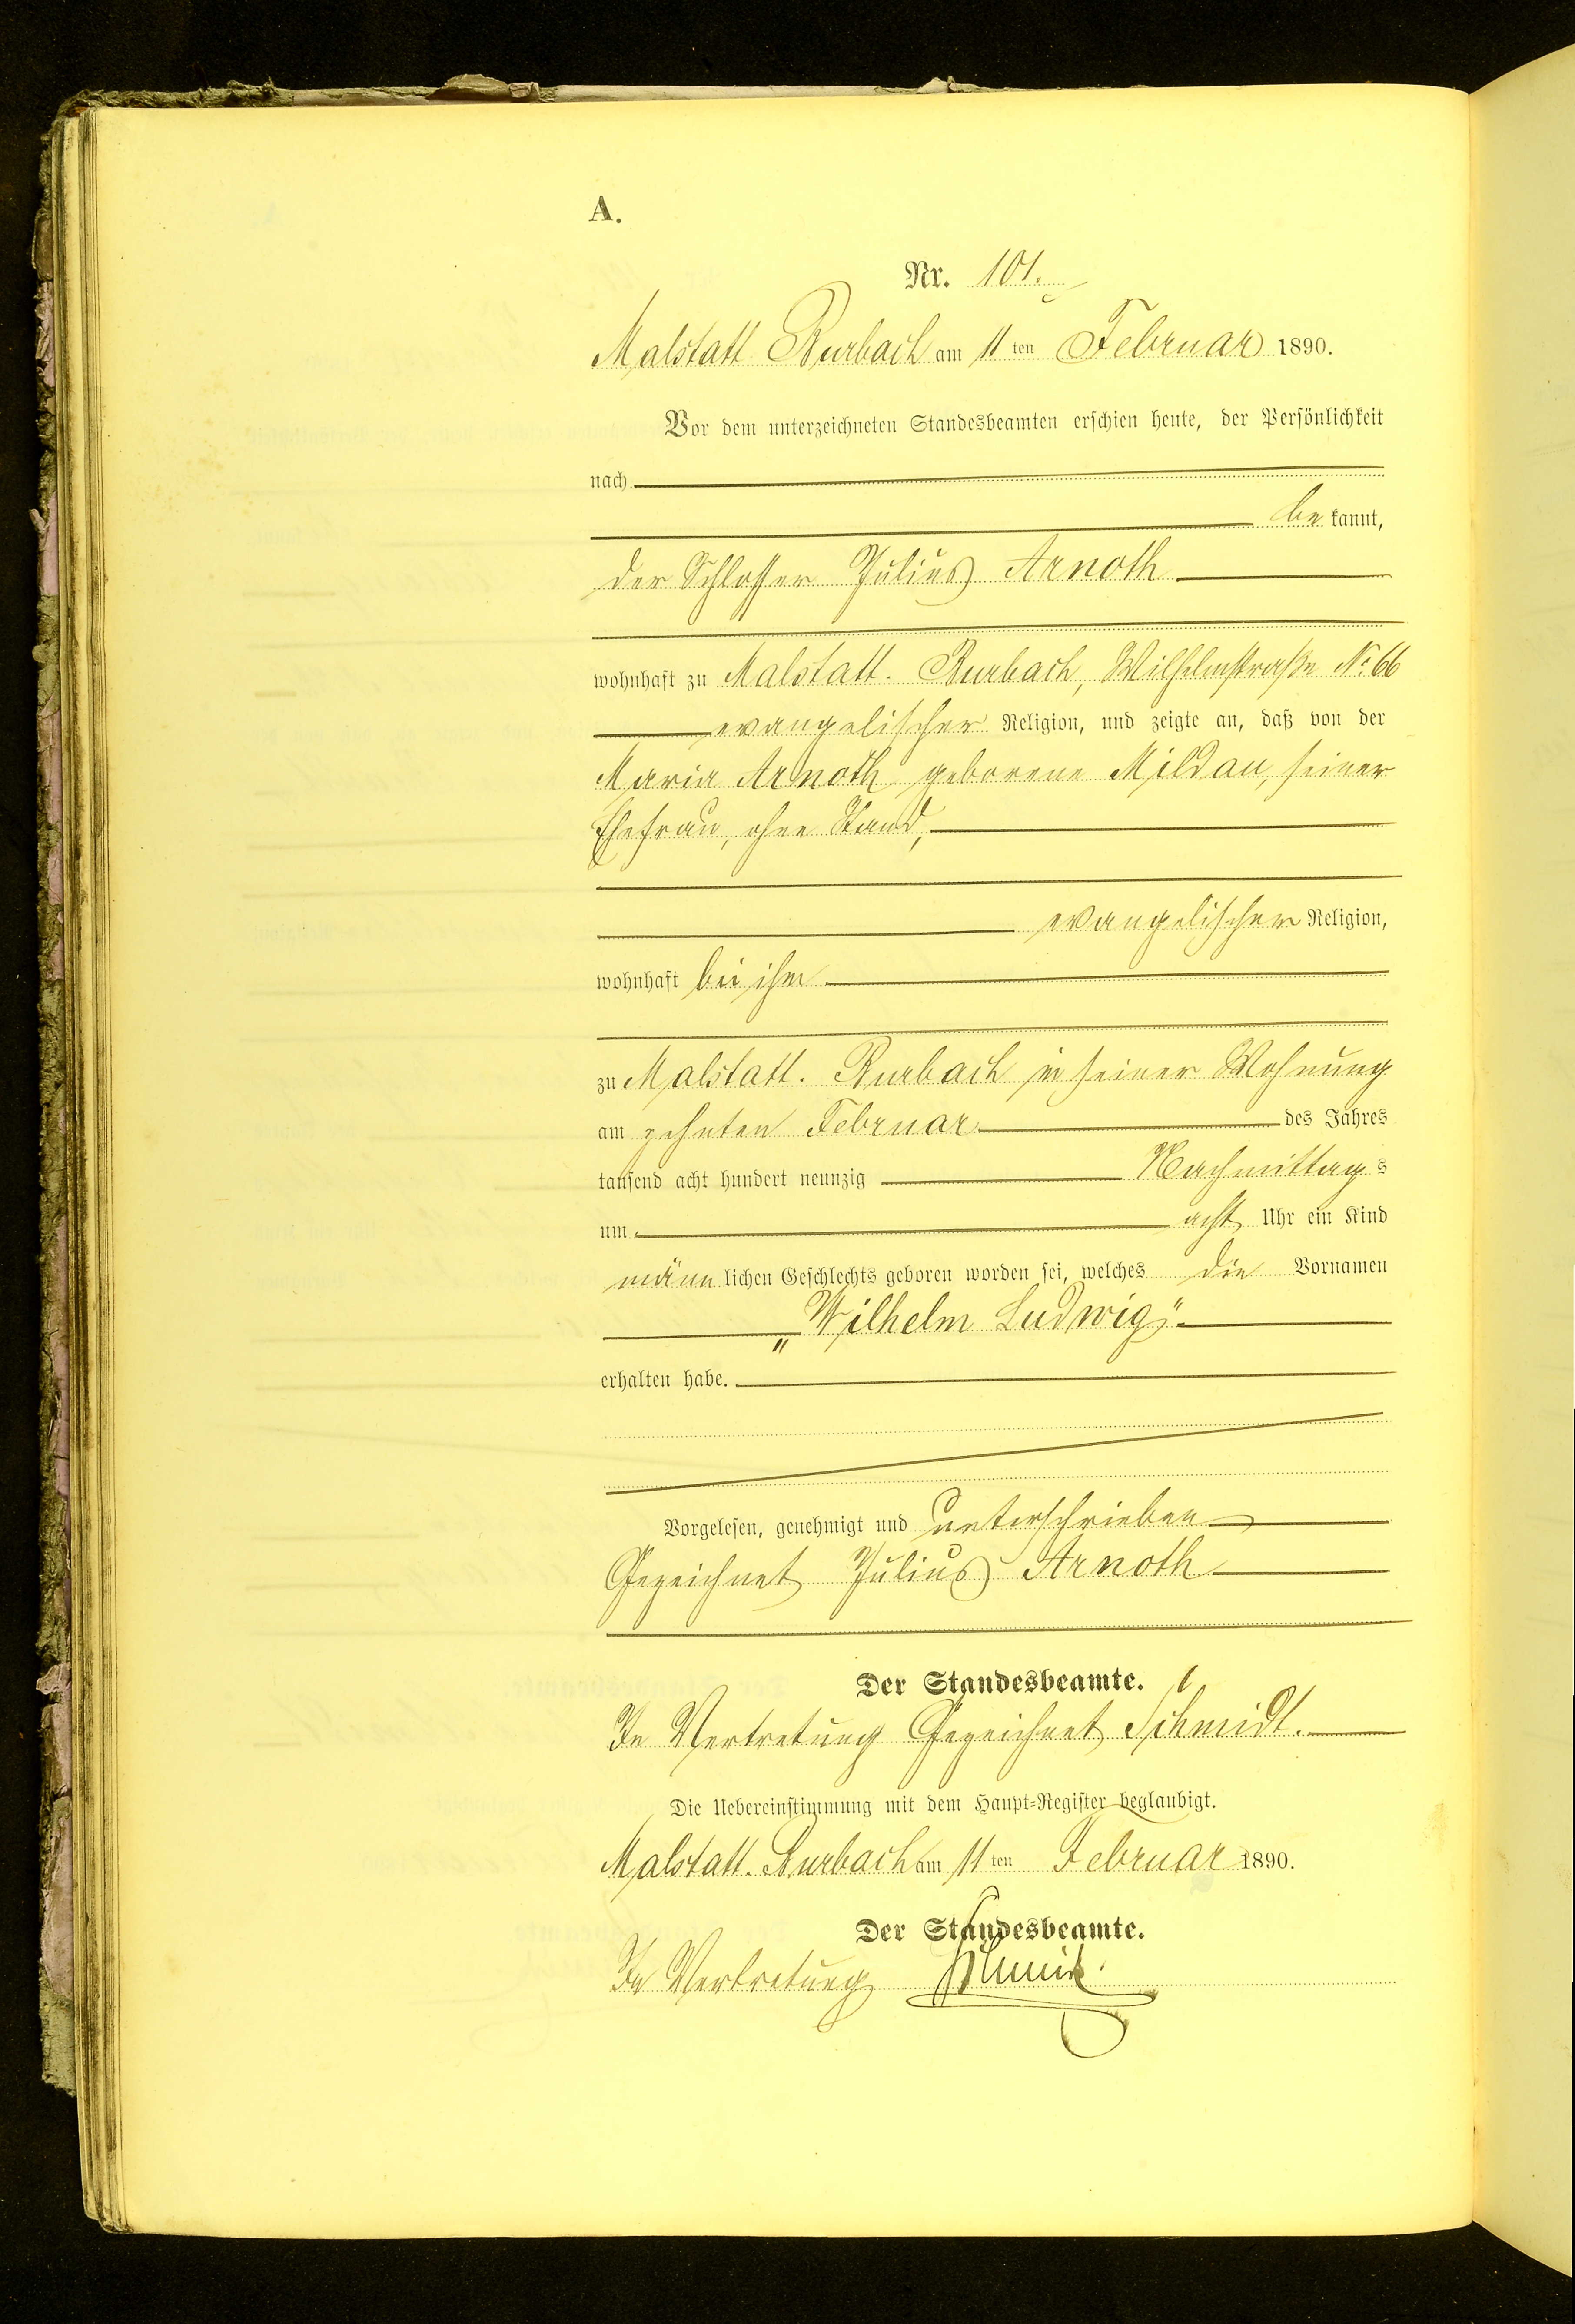 A.
Nr. 101.
Malstatt Burbach am 11 ten Februar 1890.
Vor dem unterzeichneten Standesbeamten erschien heute, der Persönlichkeit
nach
be kannt,
der Schlosser Julius Arnoth
wohnhaft zu Malstatt. Burbach, Wilhelmstraße No 66
evangelischer Religion, und zeigte an, daß von der
Maria Arnoth geborene Mildau, seiner
Ehefrau, ohne Stand,
evangelischer Religion,
wohnhaft bei ihm
zu Malstatt. Burbach in seiner Wohnung
am zehnten Februar des Jahres
tausend acht hundert neunzig Nachmittags
um acht Uhr ein Kind
männlichen Geschlechts geboren worden sei, welches die Vornamen
„Wilhelm Ludwig"
erhalten habe.
Vorgelesen, genehmigt und unterschrieben
Gezeichnet Julius Arnoth
Der Standesbeamte.
In Vertretung Gezeichnet Schmidt.
Die Uebereinstimmung mit dem Haupt-Register beglaubigt.
Malstatt. Burbach am 11 ten Februar 1890.
Der Standesbeamte.
In Vertretung Schmidt.